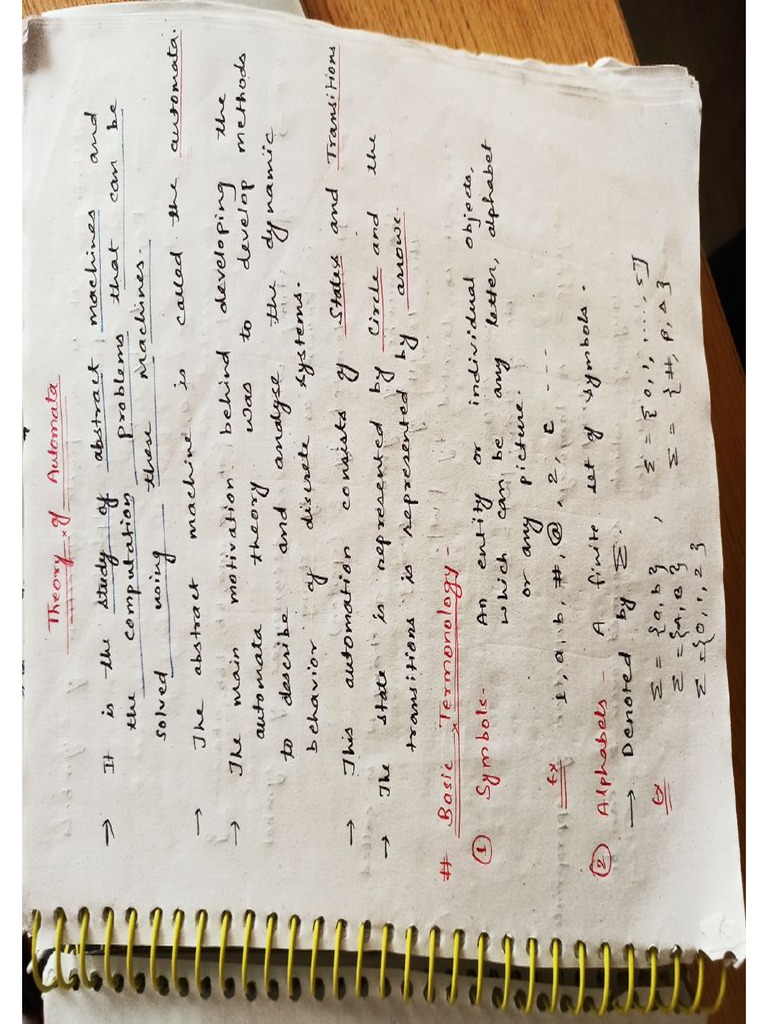 Theory of Automata
→ It is the study of abstract machines and
the computation problems that can be
solved using these machines.
→ The abstract machine is called the automata.
→ The main motivation behind developing the
automata theory was to develop methods
to describe and analyse the dynamic
behavior of discrete systems.
→ This automation consists of States and Transitions
→ The state is represented by Circle and the
transitions is represented by arrows.
# Basic Termonology -
① Symbols- An entity or individual objects,
which can be any letter, alphabet
or any picture.
Ex 1, a, b, #, @, 2, c ----
② Alphabets - A finite set of symbols.
→ Denoted by Σ.
Ex Σ = {a, b}, Σ = {0, 1, ...., 5}
Σ = {A, B} Σ = {#, P, Δ}
Σ = {0, 1, 2}